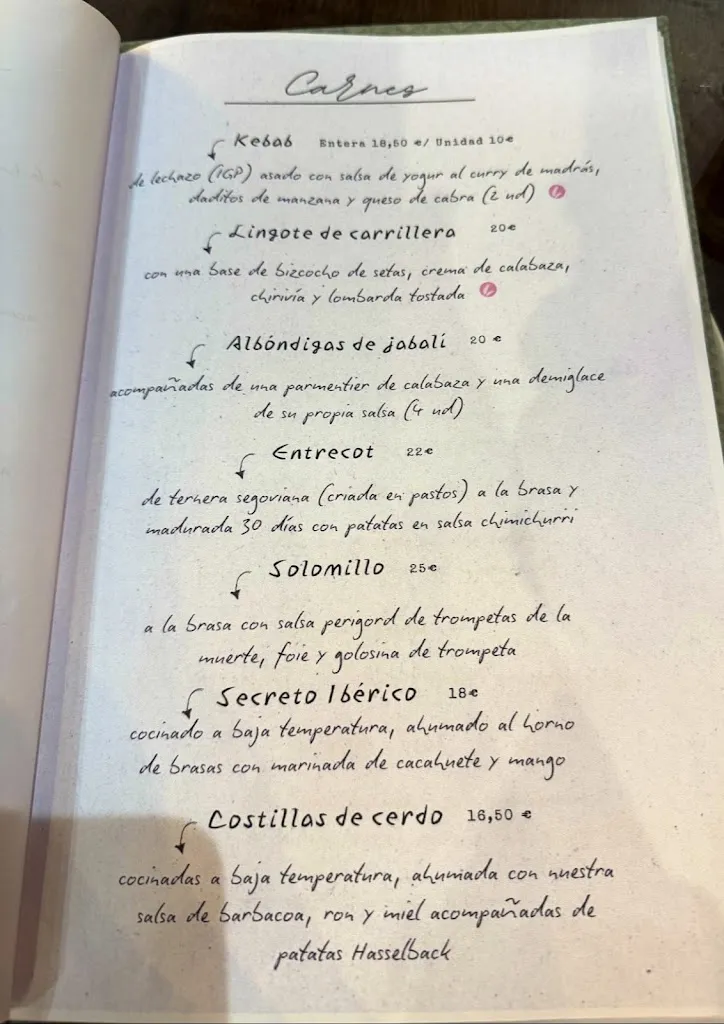 Carnes
Kebab Entera 18,50 €/ Unidad 10€
de lechazo (IGP) asado con salsa de yogur al curry de madrás,
daditos de manzana y queso de cabra (2 ud)
Lingote de carrillera 20€
con una base de bizcocho de setas, crema de calabaza,
chirivía y lombarda tostada
Albóndigas de jabalí 20 €
acompañadas de una parmentier de calabaza y una demiglace
de su propia salsa (4 ud)
Entrecot 22€
de ternera segoviana (criada en pastos) a la brasa y
madurada 30 días con patatas en salsa chimichurri
Solomillo 25€
a la brasa con salsa perigord de trompetas de la
muerte, foie y golosina de trompeta
Secreto Ibérico 18€
cocinado a baja temperatura, ahumado al horno
de brasas con marinada de cacahuete y mango
Costillas de cerdo 16,50 €
cocinadas a baja temperatura, ahumada con nuestra
salsa de barbacoa, ron y miel acompañadas de
patatas Hasselback